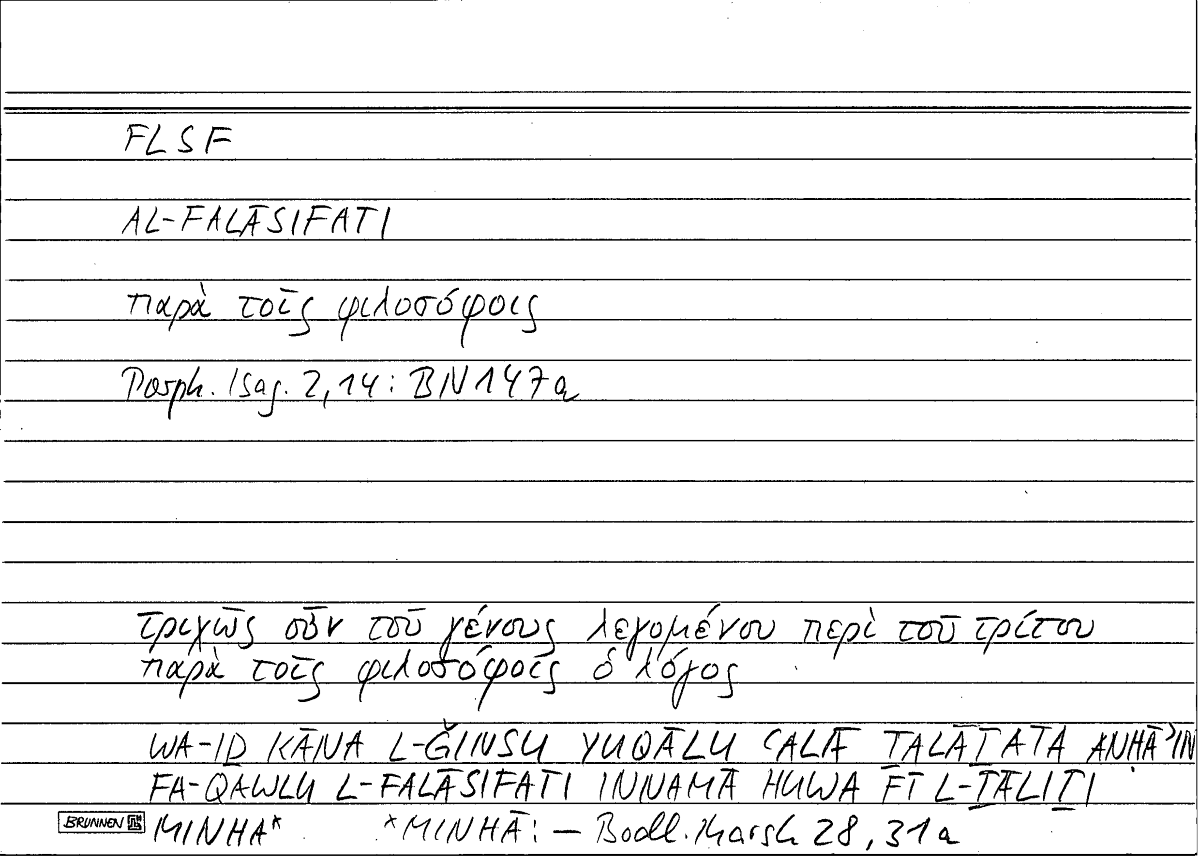 FLSF
AL-FALĀSIFATI
παρὰ τοῖς φιλοσόφοις
Porph. Isag. 2,14: BN 147a
τριχῶς οὖν τοῦ γένους λεγομένου περὶ τοῦ τρίτου
παρὰ τοῖς φιλοσόφοις ὁ λόγος
WA-IḎ KĀNA L-ǦINSU YUQĀLU ʿALĀ ṮALĀṮATA ANḤĀʾIN
FA-QAWLU L-FALĀSIFATI INNAMĀ HUWA FĪ L-ṮĀLIṮI
BRUNNEN MINHA* *MINHĀ: — Bodl. Marsh 28, 31a